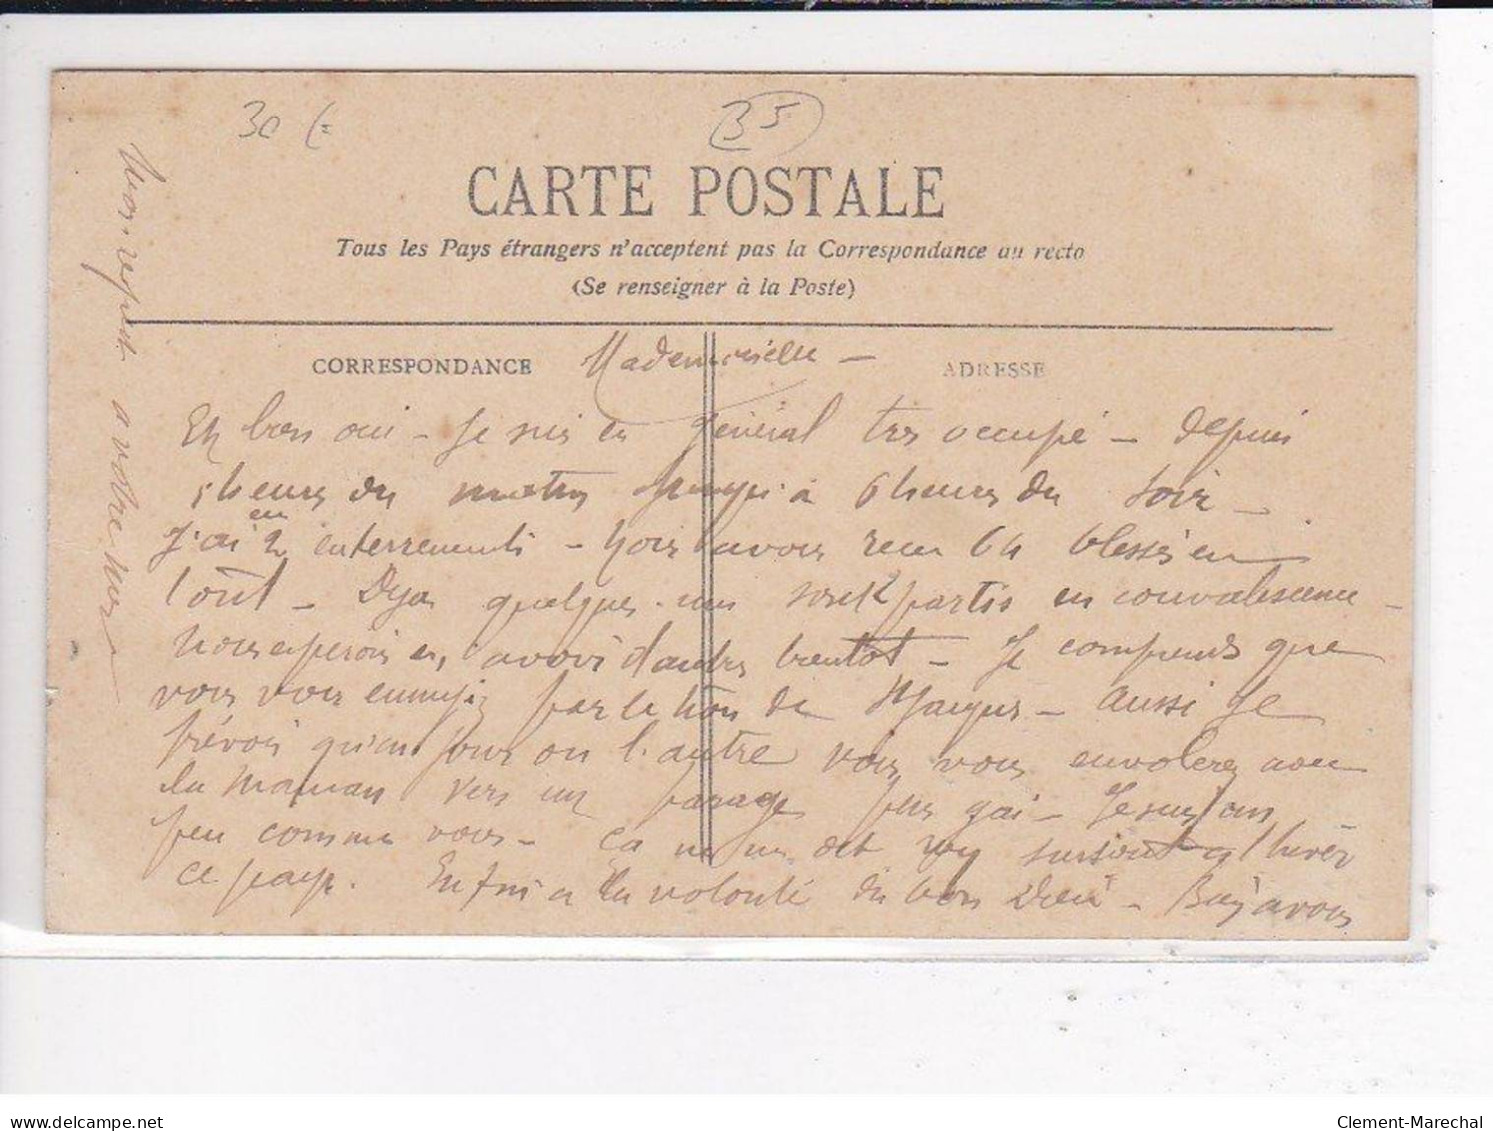 30 €
35
CARTE POSTALE
Tous les Pays étrangers n'acceptent pas la Correspondance au recto
(Se renseigner à la Poste)
CORRESPONDANCE
ADRESSE
Mademoiselle —
Eh bien oui - Je suis en général très occupé - depuis
5 heures du matin jusqu'à 6 heures du soir -
J'ai eu 2 enterrements - Nous avons reçu 64 blessés en
tout - Déja quelques-uns sont partis en convalescence -
nous esperons en avoir d'autres bientot - Je comprends que
vous vous ennuyiez par le trou de - Aussi Je
prévois qu'un jour ou l'autre vous vous envolerez avec
la maman vers un parage plus gai - Je suis un
peu comme vous - ça ne me dit rien surtout l'hiver
ce pays. Enfin à la volonté du bon Dieu -
Mon respect à votre sœur
delcampe.net
Clement-Marechal